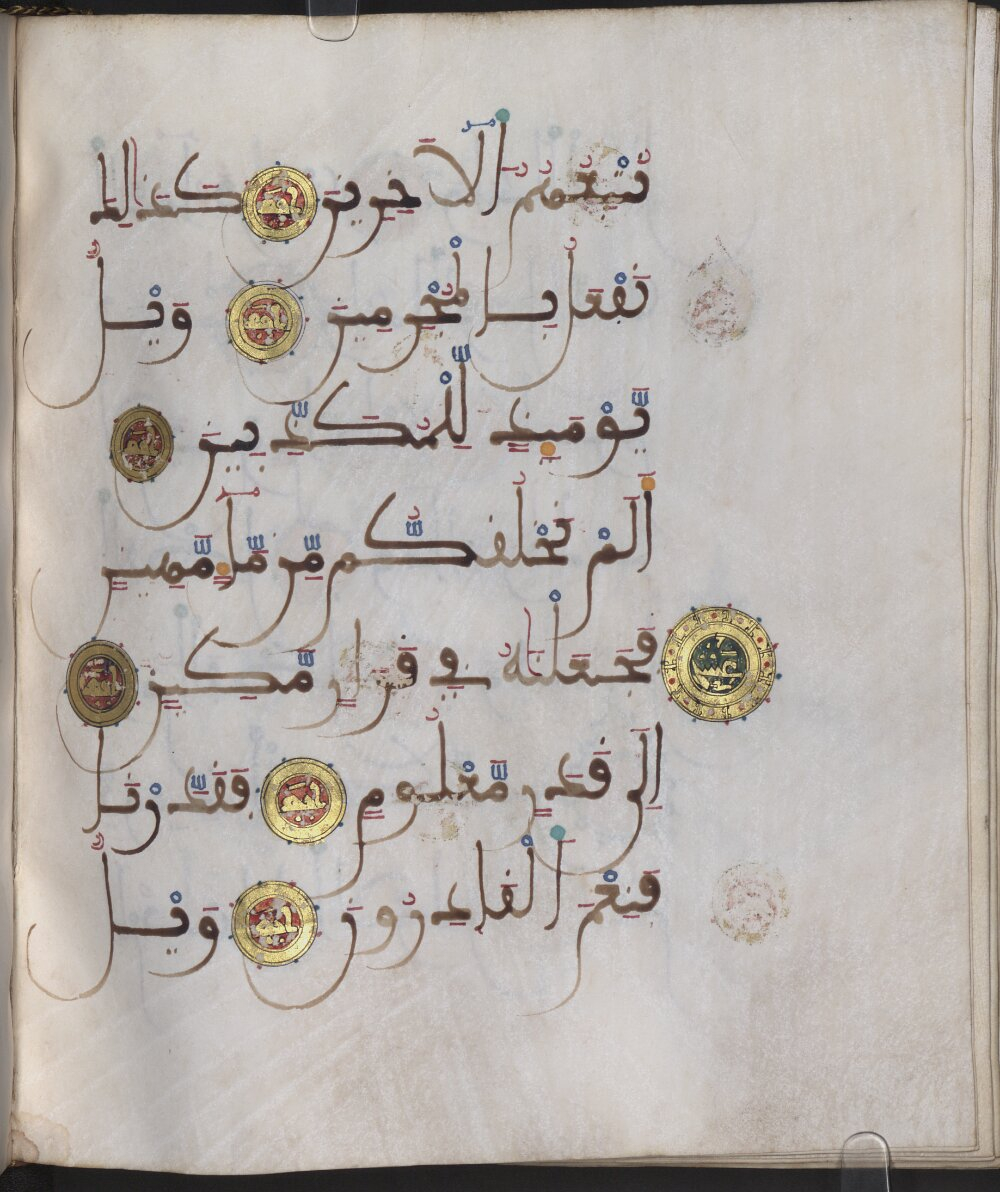 نُتْبِعُهُمُ ٱلَاخِرِينَ كَذَٰلِكَ
نَفْعَلُ بِالْمُجْرِمِينَ وَيْلٌ
يَّوْمَئِذٍ لِّلْمُكَذِّبِينَ
أَلَمْ نَخْلُقكُّم مِّن مَّآءٍ مَّهِينٍ
فَجَعَلْنَٰهُ فِي قَرَارٍ مَّكِينٍ
إِلَىٰ قَدَرٍ مَّعْلُومٍ فَقَدَّرْنَا
فَنِعْمَ ٱلْقَٰدِرُونَ وَيْلٌ